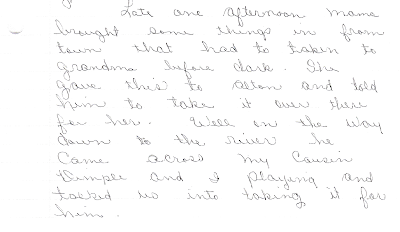 Late one afternoon mama
brought some things in from
town that had to taken to
grandma before dark. She
gave this to Alton and told
him to take it over there
for her. Well on the way
down to the river he
Came across my Cousin
Wimple and I playing and
talked us into taking it for
him.